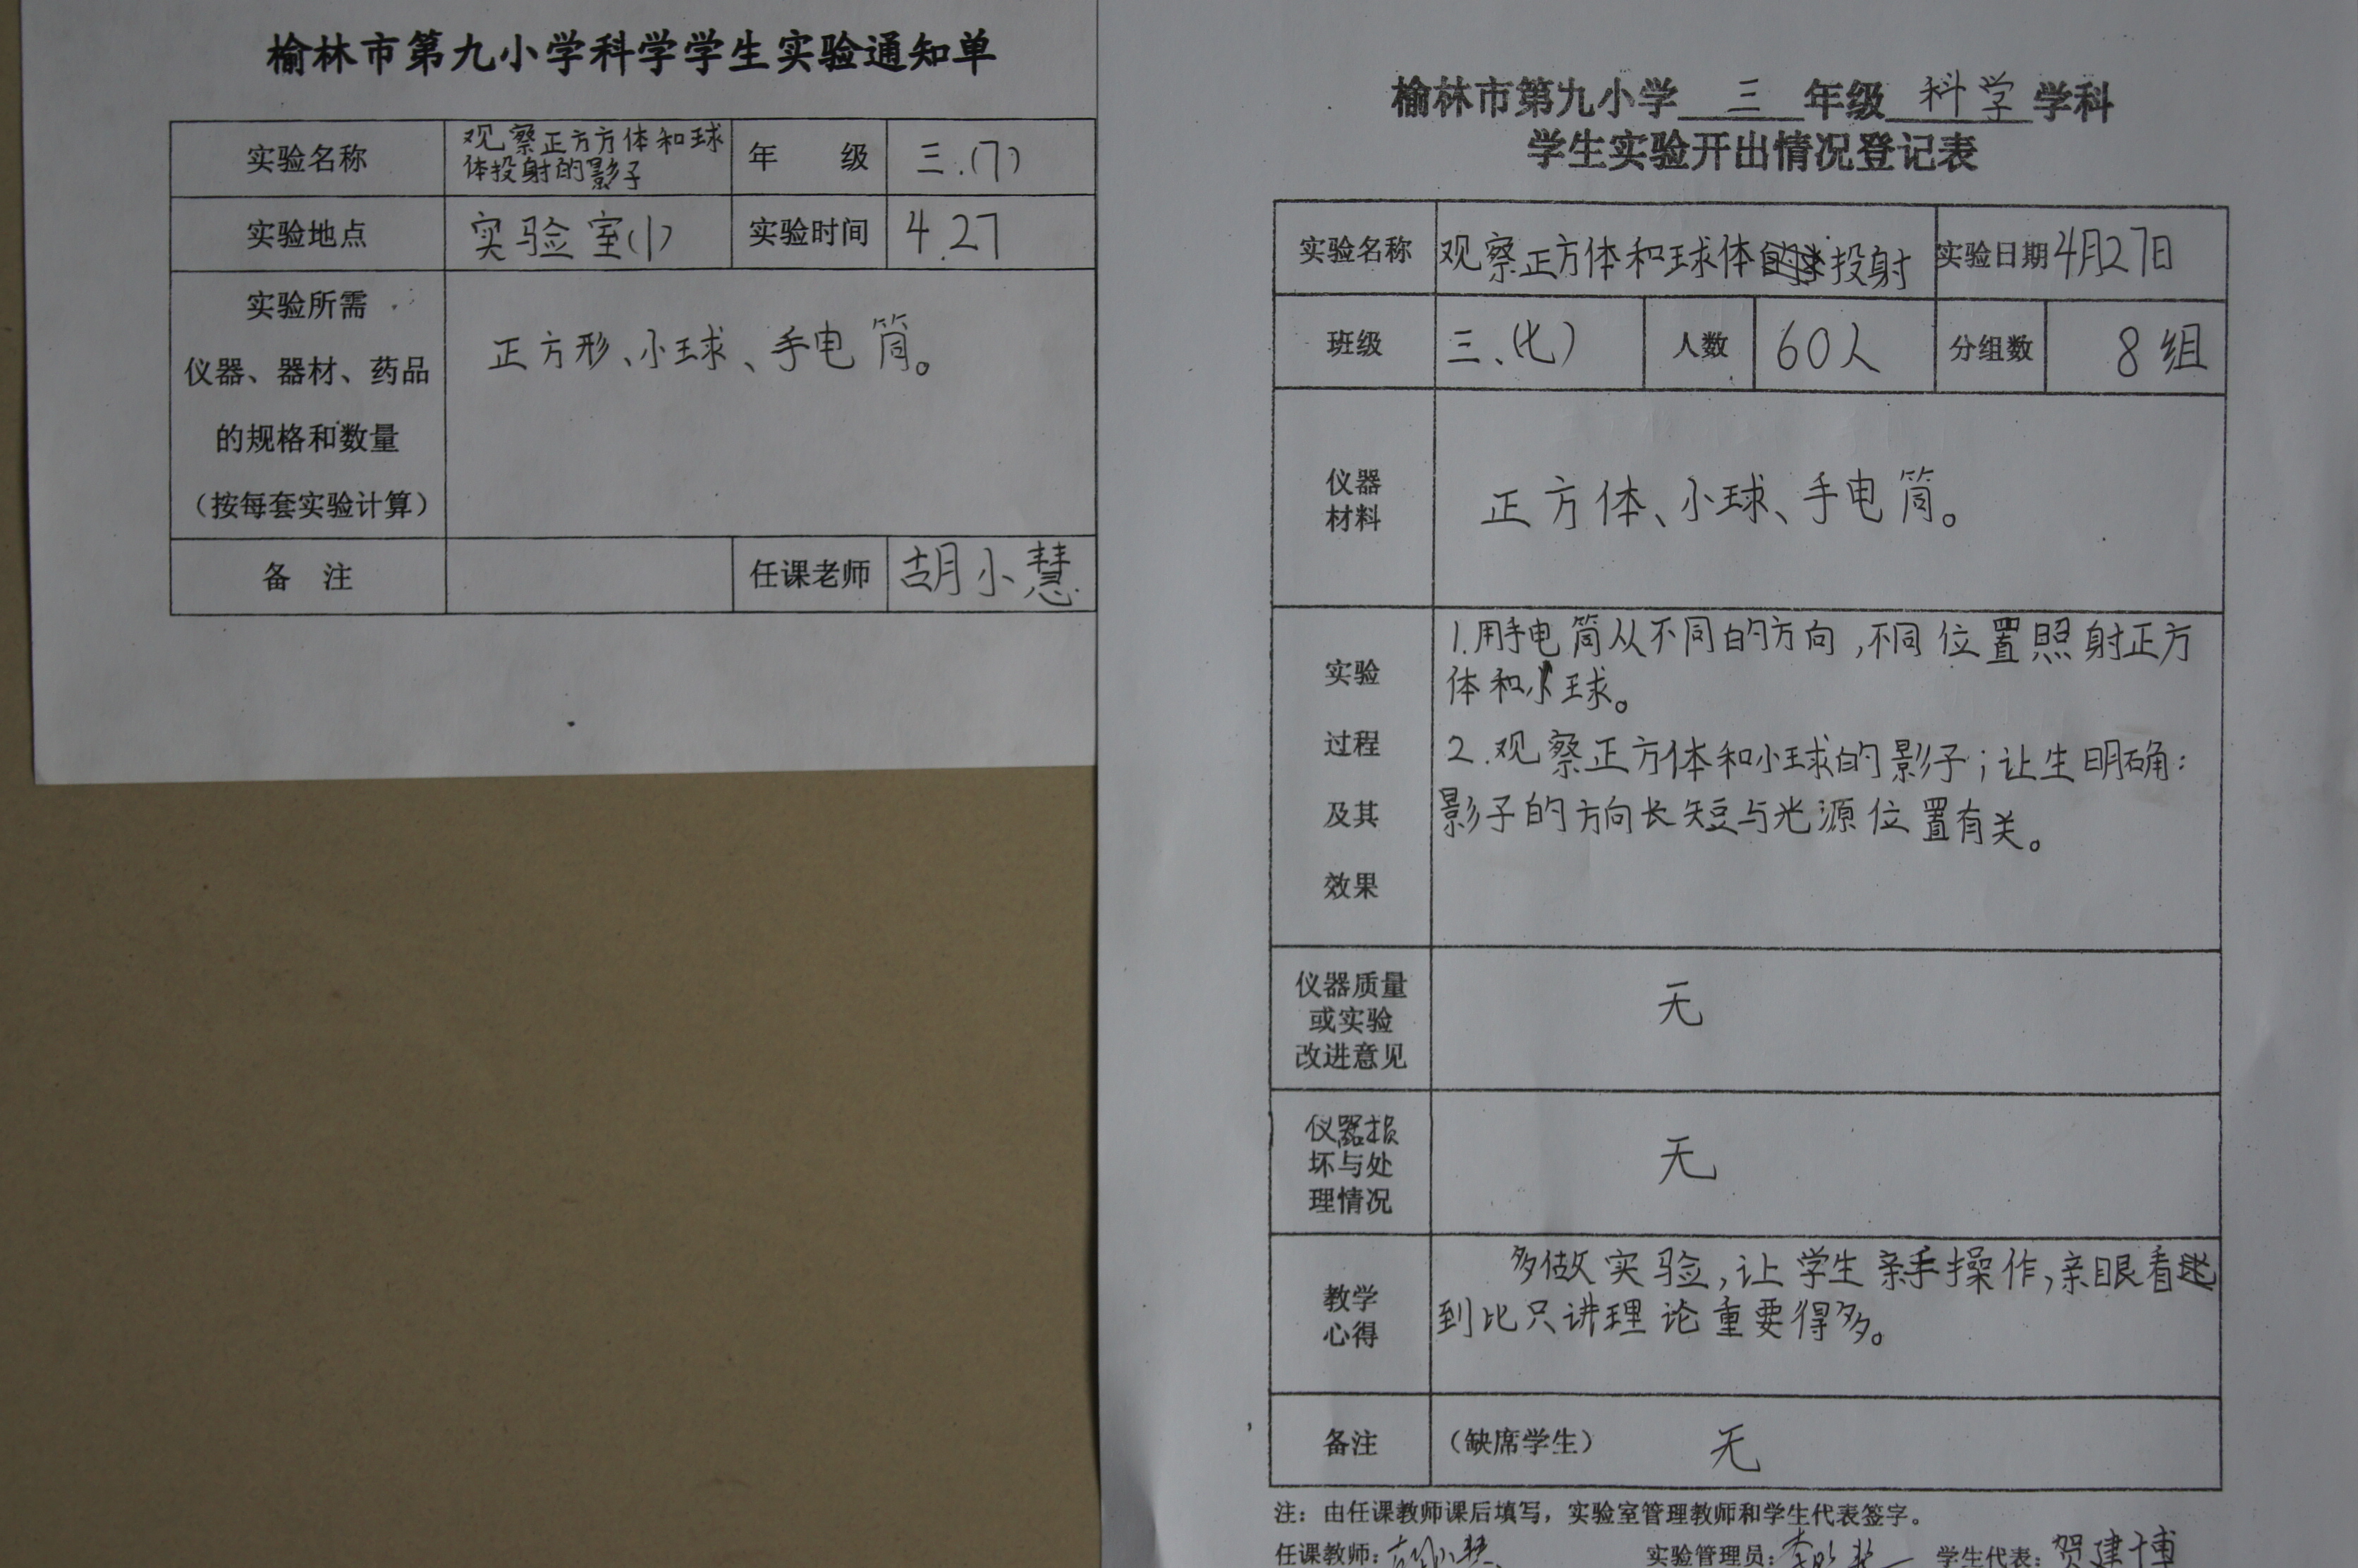 榆林市第九小学科学学生实验通知单
实验名称 观察正方方体和球
体投射的影子 年 级 三.(7)
实验地点 实验室(1) 实验时间 4.27
实验所需
仪器、器材、药品
的规格和数量
（按每套实验计算）
正方形、小球、手电筒。
备 注 任课老师 胡小慧
榆林市第九小学 三 年级 科学 学科
学生实验开出情况登记表
实验名称 观察正方体和球体投射 实验日期 4月27日
班级 三.(七) 人数 60人 分组数 8组
仪器
材料
正方体、小球、手电筒。
实验
过程
及其
效果
1.用手电筒从不同的方向,不同位置照射正方
体和小球。
2.观察正方体和小球的影子;让生明确:
影子的方向长短与光源位置有关。
仪器质量
或实验
改进意见
无
仪器损
坏与处
理情况
无
教学
心得
多做实验,让学生亲手操作,亲眼看
到比只讲理论重要得多。
备注 （缺席学生） 无
注：由任课教师课后填写，实验室管理教师和学生代表签字。
任课教师: 胡小慧 实验管理员: 学生代表: 贺建博